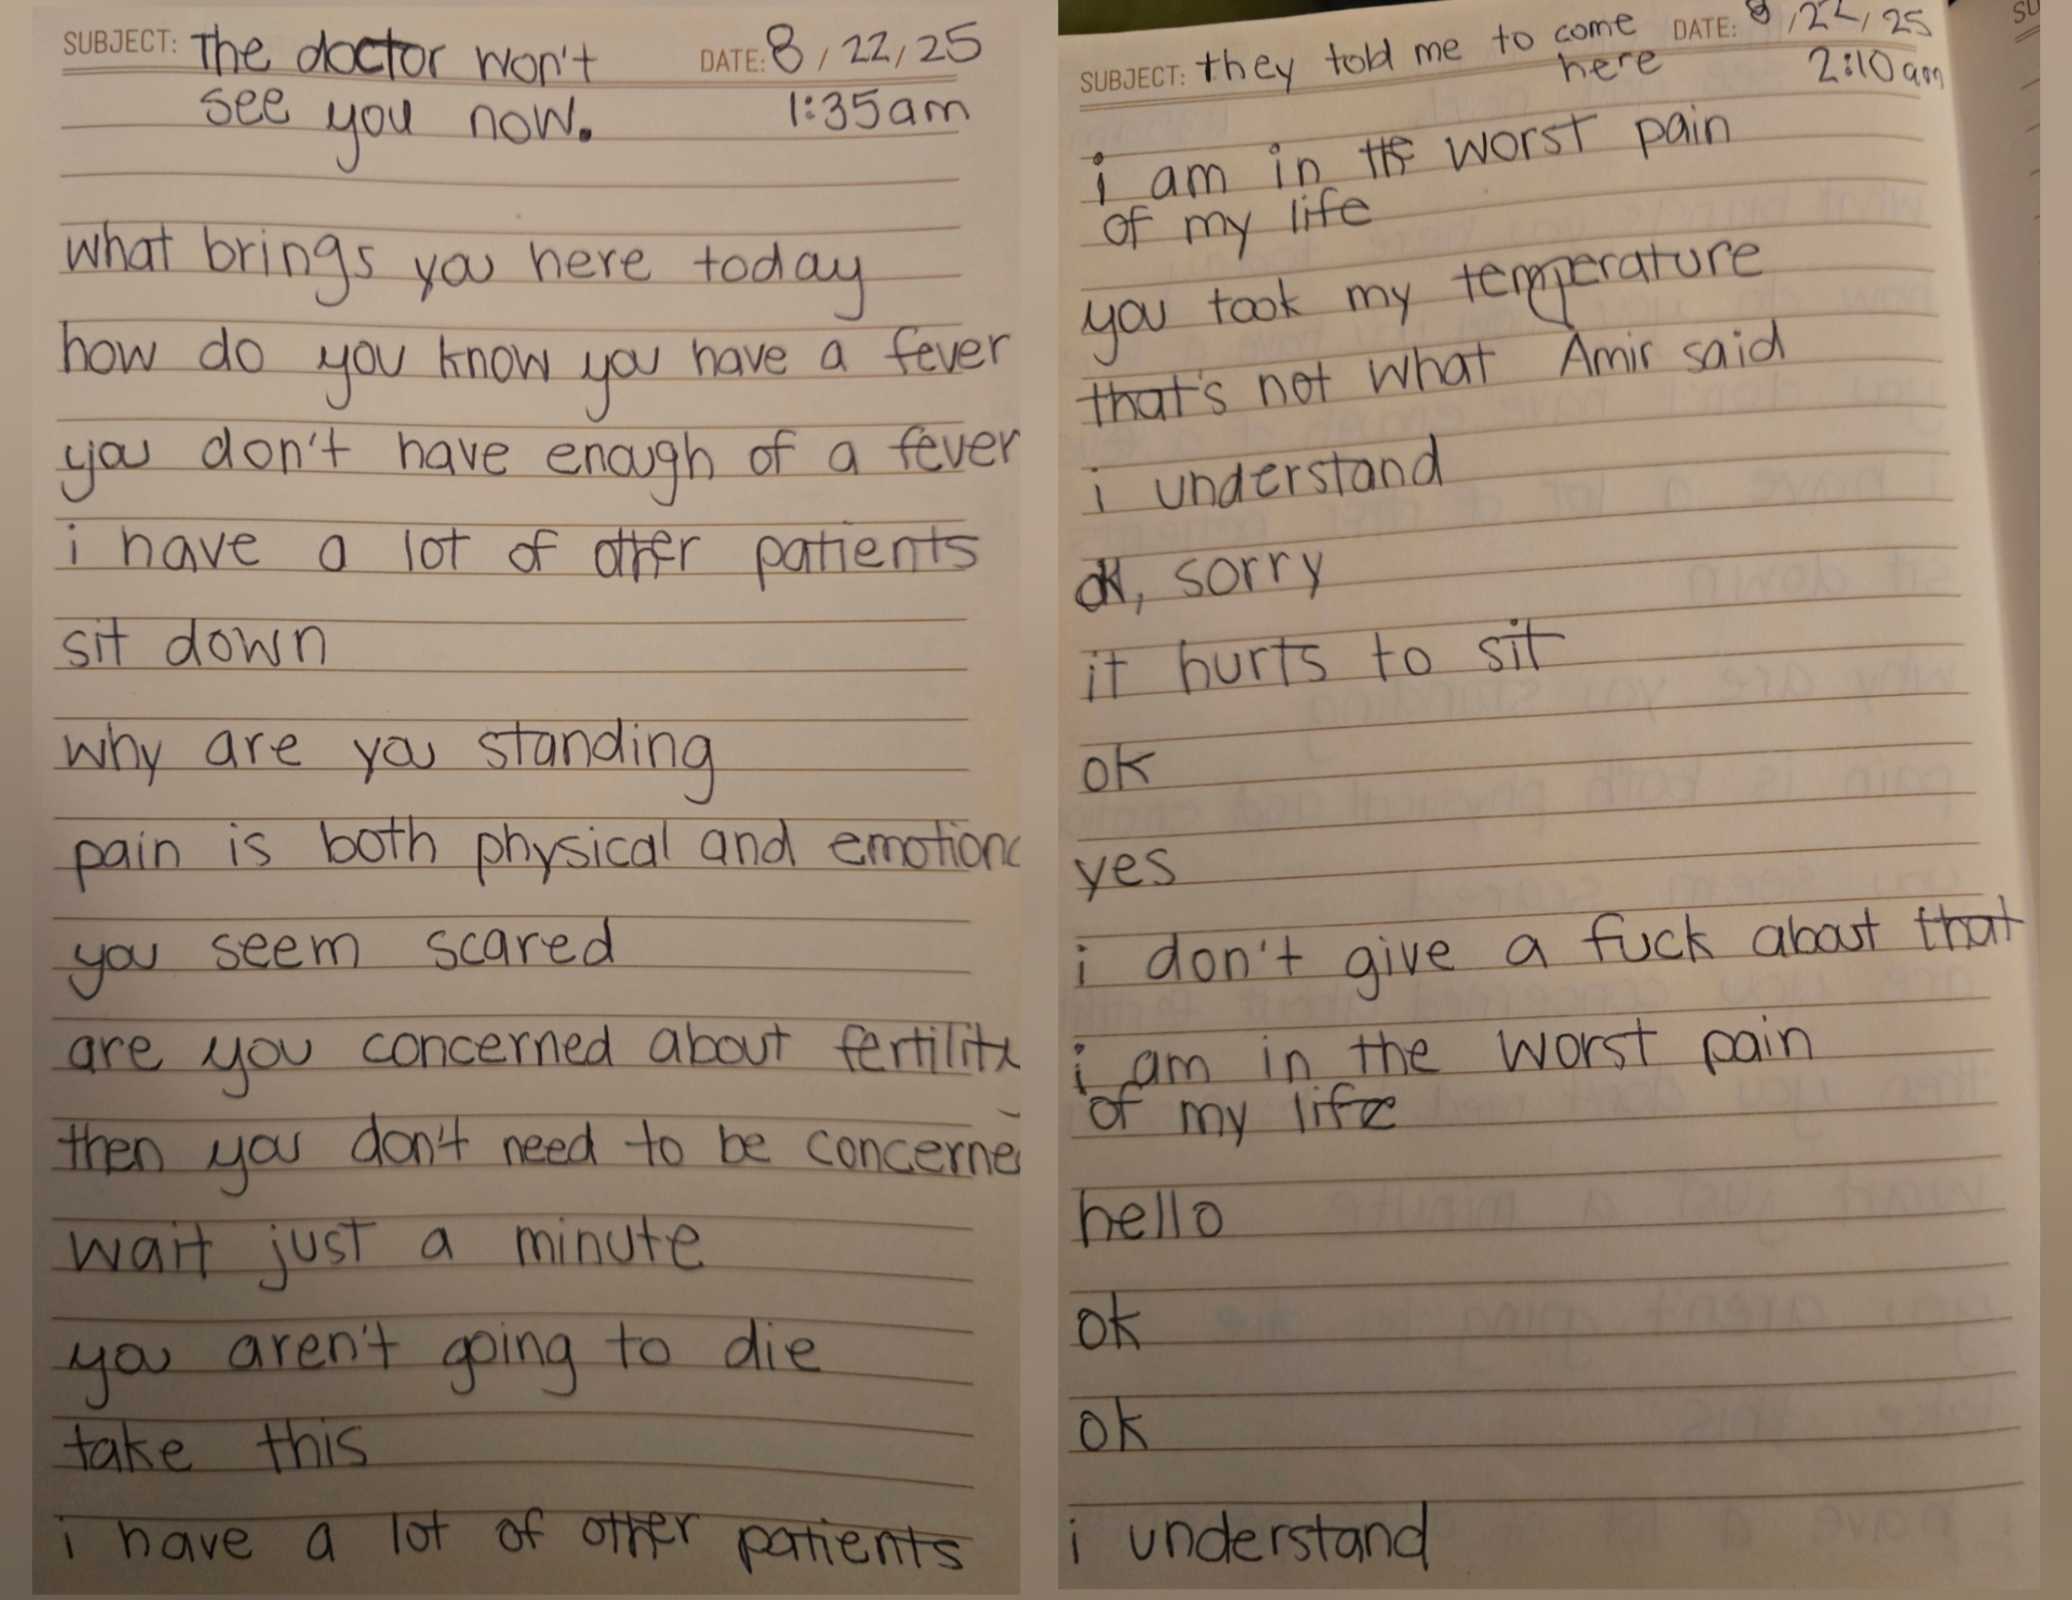 SUBJECT: The doctor won't DATE: 8/22/25
see you now. 1:35am
what brings you here today
how do you know you have a fever
you don't have enough of a fever
i have a lot of other patients
sit down
why are you standing
pain is both physical and emotiona
you seem scared
are you concerned about fertility
then you don't need to be concerned
wait just a minute
you aren't going to die
take this
i have a lot of other patients
SUBJECT: they told me to come DATE: 8/22/25
here 2:10am
i am in the worst pain
of my life
you took my temperature
that's not what Amir said
i understand
ok, sorry
it hurts to sit
ok
yes
i don't give a fuck about that
i am in the worst pain
of my life
hello
ok
ok
i understand